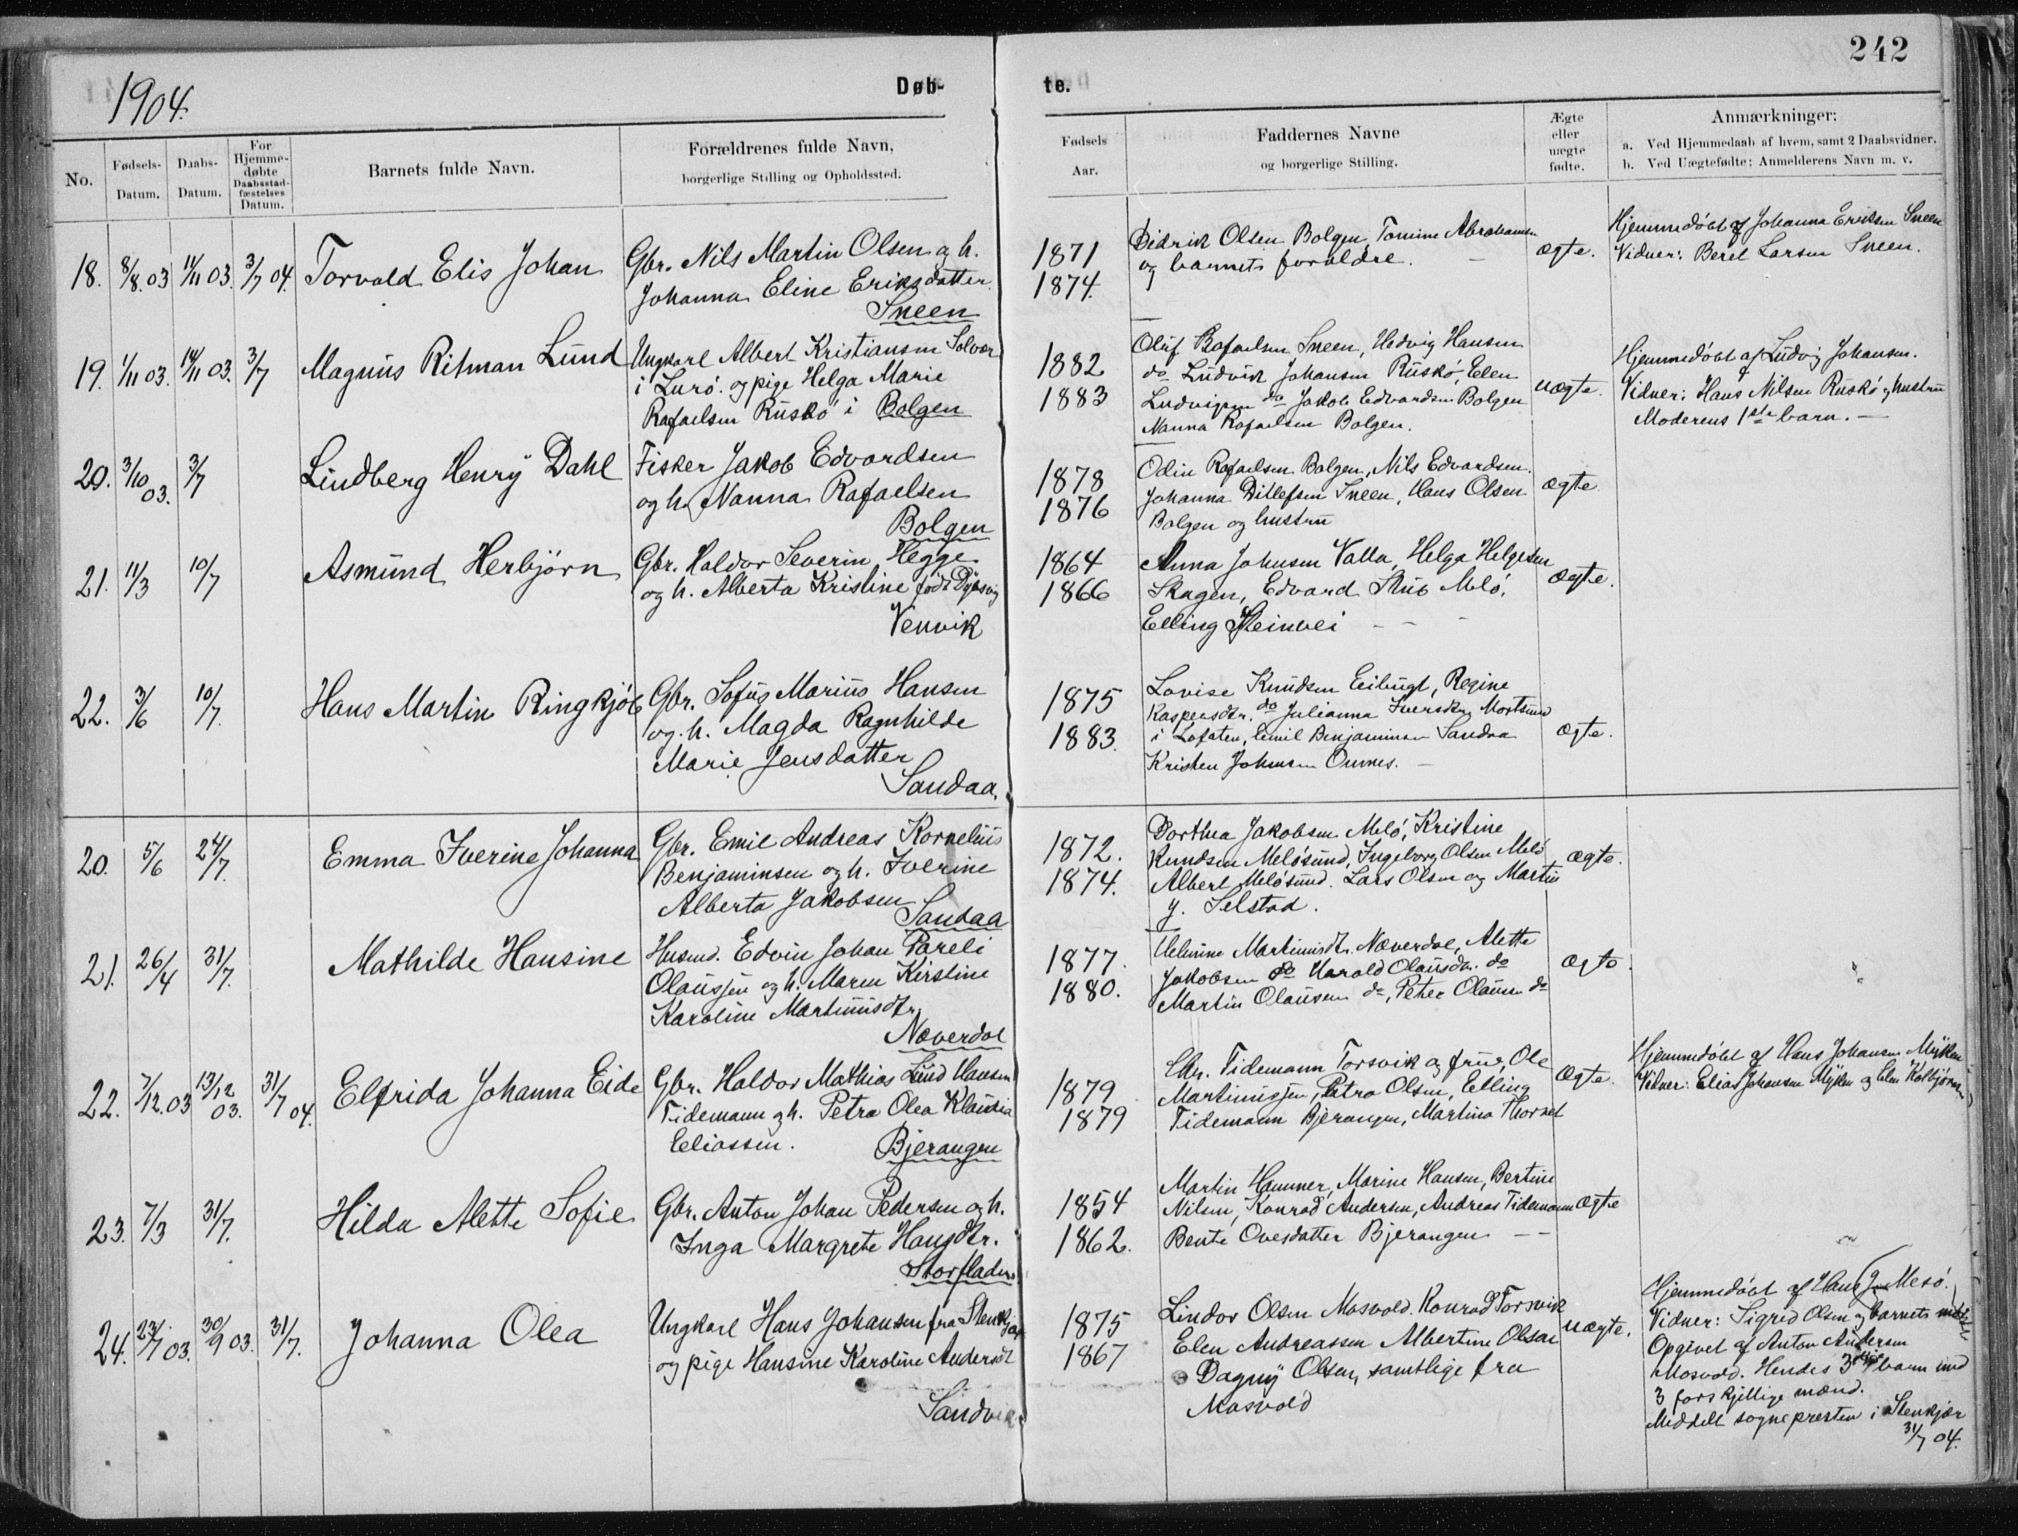 242
1904.
Døb-
te.
No.
Fødsels-
Datum.
Daabs-
Datum.
For
Hjemme-
døbte
Daabsstad-
fæstelses
Datum.
Barnets fulde Navn.
Forældrenes fulde Navn,
borgerlige Stilling og Opholdssted.
Fødsels
Aar.
Faddernes Navne
og borgerlige Stilling.
Ægte
eller
uægte
fødte.
Anmærkninger:
a. Ved Hjemmedaab af hvem, samt 2 Daabsvidner.
b. Ved Uægtefødte: Anmelderens Navn m. v.
18. 8/8.03 11/11 03. 3/7 04. Torvald Elis Johan
Gbr. Nils Martin Olsen og h.
Johanna Eline Eriksdatter.
Sneen
1871
1874.
Didrik Olsen Bolgen, Tomine Abrahamsen
og barnets forældre. —
ægte.
Hjemmedöbt af Johanna Eriksen Sneen
Vidner: Beret Larsen Sneen.
19. 1/11 03. 14/11 03. 3/7 Magnus Ritman Lund
Ungkarl Albert Kristiansen Solvær
i Lurö. og pige Helga Marie
Rafaelsen Ruskö i Bolgen
1882
1883
Oluf Rafaelsen Sneen, Hedvig Hansen
do Ludvik Johansen Ruskö, Elen
Ludvigsen do Jakob Edvardsen Bolgen
Nanna Rafaelsen Bolgen.
uægte.
Hjemmedöbt af Ludvig Johansen.
Vidner: Hans Nilsen Ruskö og hustru
Moderens 1ste barn. —
20. 3/10 03. 3/7 Lindberg Henry Dahl
Fisker Jakob Edvardsen
og h. Nanna Rafaelsen
Bolgen
1878
1876
Odin Rafaelsen Bolgen, Nils Edvardsen.
Johanna Ditlefsen Sneen, Hans Olsen
Bolgen og hustru
ægte.
21. 11/3 10/7 Asmund Herbjørn
Gbr. Haldor Severin Hegge
og h. Alberta Kristine født Dybsvig
Venvik
1864
1866
Anna Johnsen Valla, Helga Helgesen
Skagen, Edvard Stub Melö,
Elling Steinvei - - -
ægte.
22. 3/6 10/7. Hans Martin Ringkjøb
Gbr. Sofus Marius Hansen
og. h. Magda Ragnhilde
Marie Jensdatter
Sandaa.
1875
1883.
Lovise Knudsen Eibugt, Regine
Kaspersdtr. do Julianna Iversdtr. Mortsund
i Lofoten, Emil Benjaminsen Sandaa
Kristen Johnsen Ornes. —
ægte.
20. 5/6 24/7. Emma Iverine Johanna
Gbr. Emil Andreas Kornelius
Benjaminsen og h. Iverine
Alberta Jakobsen
Sandaa
1872.
1874.
Dorthea Jakobsen Melö, Kristine
Knudsen Melösund, Ingeborg Olsen Melö
Albert Melösund. Lars Olsen og Martin
J. Selstad.
ægte.
21. 26/4 31/7. Mathilde Hansine
Husmd. Edvin Johan Pareli
Olaussen og h. Maren Kirstine
Karoline Martinusdtr.
Næverdal
1877.
1880.
Helmine Martinusdtr. Næverdal, Alette
Jakobsen do Harald Olausen. do
Martin Olausen do, Peter Olausen do
ægte.
22. 7/12.03 13/12 03. 31/7 04. Elfrida Johanna Eide
Gbr. Haldor Mathias Lund Hansen
Tidemann og h. Petra Olea Klaudia
Eliassen.
Bjerangen
1879
1879
Chr. Tidemann Torsvik og frue, Ole
Martinussen, Petra Olsen, Elling
Tidemann Bjerangen, Martina Thorset
ægte.
Hjemmedöbt af Hans Johansen Myken
Vidner: Elias Johansen Myken og Elen Kolbjørnsen
23. 7/3 31/7. Hilda Alette Sofie
Gbr. Anton Johan Pedersen og h.
Inga Margrete Hansdtr.
Storfladen
1854
1862.
Martin Hammer, Marine Hansen, Bertine
Nilsen, Konrad Andersen, Andreas Tidemann
Bente Ovesdatter Bjerangen — —
ægte
24. 23/7 03. 30/9 03. 31/7. Johanna Olea
Ungkarl Hans Johansen fra Stenkjær
og pige Hansine Karoline Andersdt
Sandvik
1875
1867
Lindor Olsen Mosvold. Konrad Torsvik
Elen Andreassen Albertine Olsen
Dagny Olsen, samtlige fra
Mosvold
uægte.
Hjemmedöbt af Hans J. Mesö.
Vidner: Sigrid Olsen og barnets moder
Opgivet af Anton Andersen
Mosvold. Hendes 3die barn med
3 forskjellige mænd.
Meddelt sognepresten i Stenkjær
31/7 04.